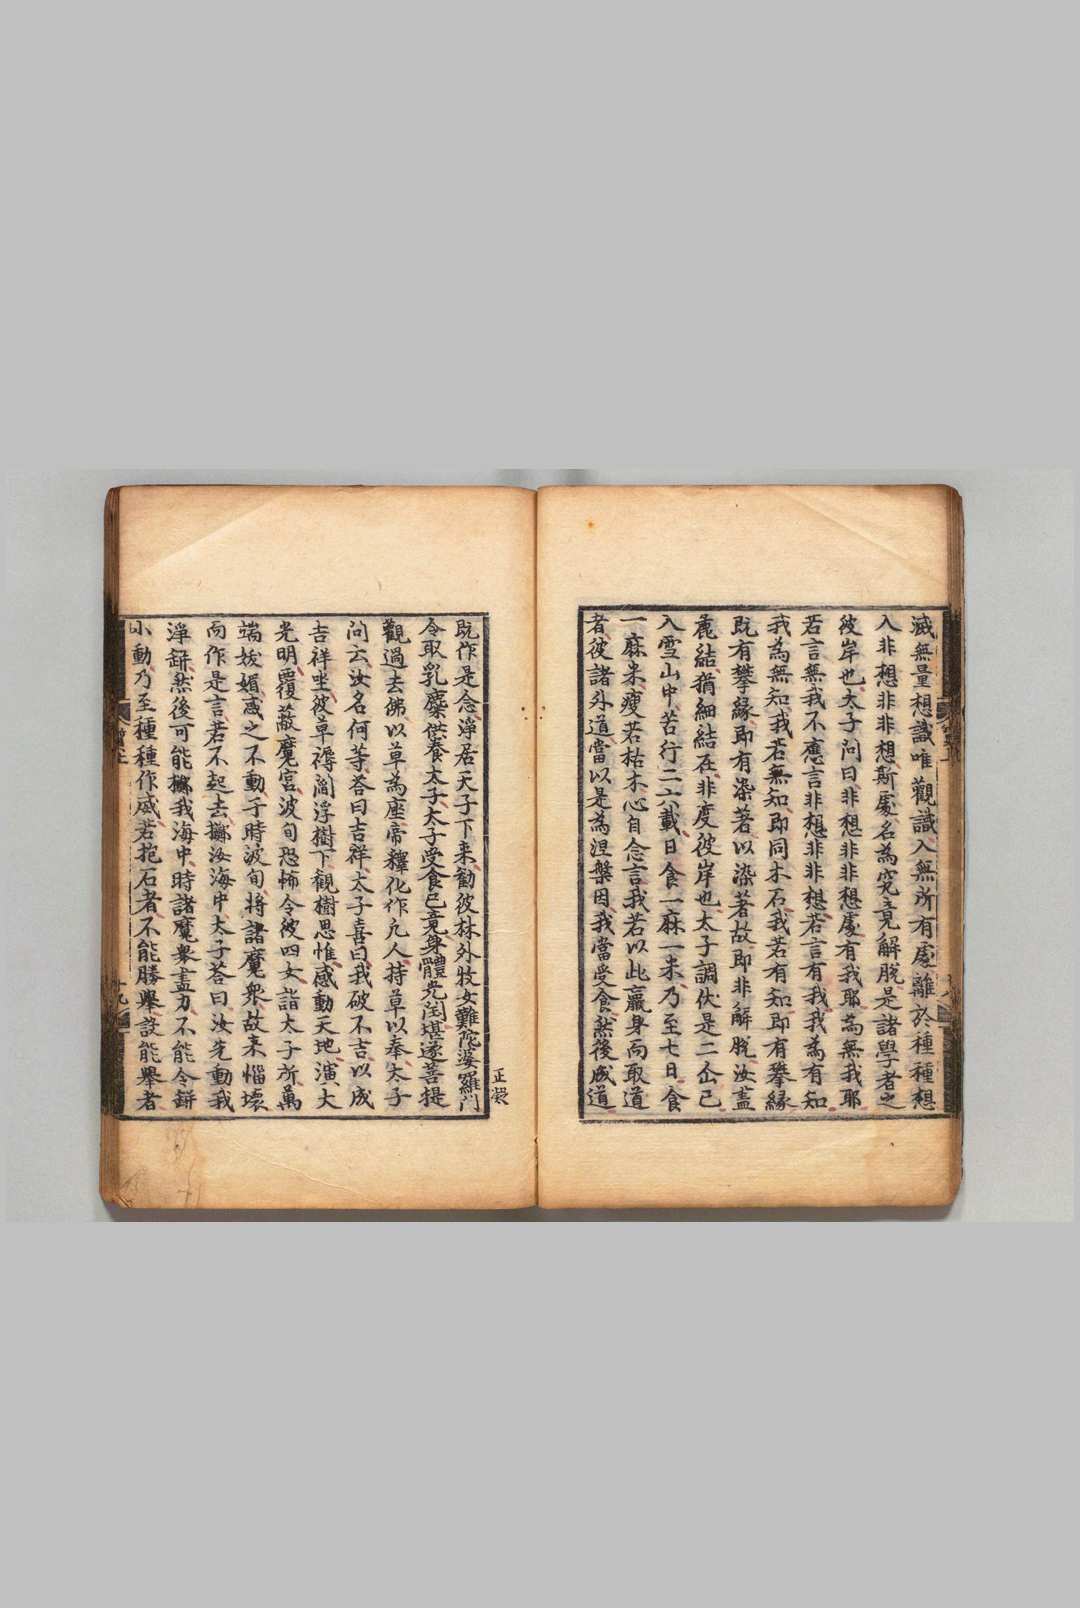 滅無量想識唯觀識入無所有處離於種種想
入非想非非想斯處名為究竟解脫是諸學者之
彼岸也太子问曰非想非非想處有我耶為無我耶
若言無我不應言非想非非想若言有我我為有知
我為無知我若無知即同木石我若有知即有攀緣
既有攀緣即有染著以染著故即非解脫汝盡
麁結猶細結在非度彼岸也太子調伏是二仙已
入雪山中苦行二六載日食一麻一米乃至七日食
一麻米瘦若枯木心自念言我若以此羸身而取道
者彼諸外道當以是為涅槃因我當受食然後成道
既作是念淨居天子下来勸彼林外牧女難陀婆羅门
令取乳糜供養太子太子受食已竟身體光润堪遂菩提
觀過去佛以草為座帝釋化作凡人持草以奉太子
问云汝名何等答曰吉祥太子喜曰我破不吉以成
吉祥坐彼草褥閻浮樹下觀樹思惟感動天地演大
光明覆蔽魔宮波旬恐怖令彼四女詣太子所萬
端妓媚惑之不動于時波旬将諸魔衆故来惱壞
而作是言若不起去擲汝海中太子答曰汝先動我
淨缾然後可能擲我海中時諸魔衆盡力不能令缾
小動乃至種種作威若抱石者不能勝舉設能舉者
正礙
十九